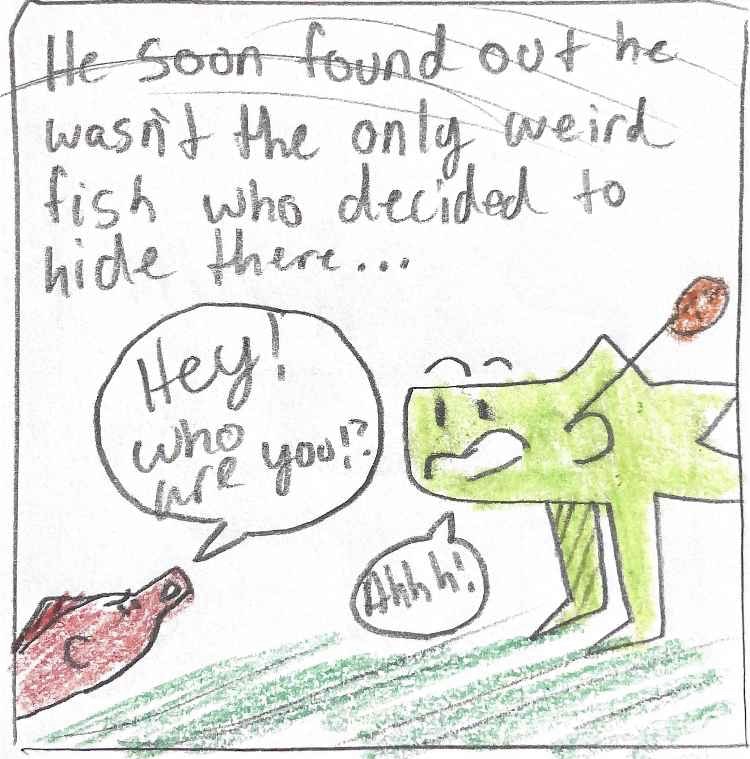 He soon found out he
wasn't the only weird
fish who decided to
hide there...
Hey!
who
are you!?
Ahhh!